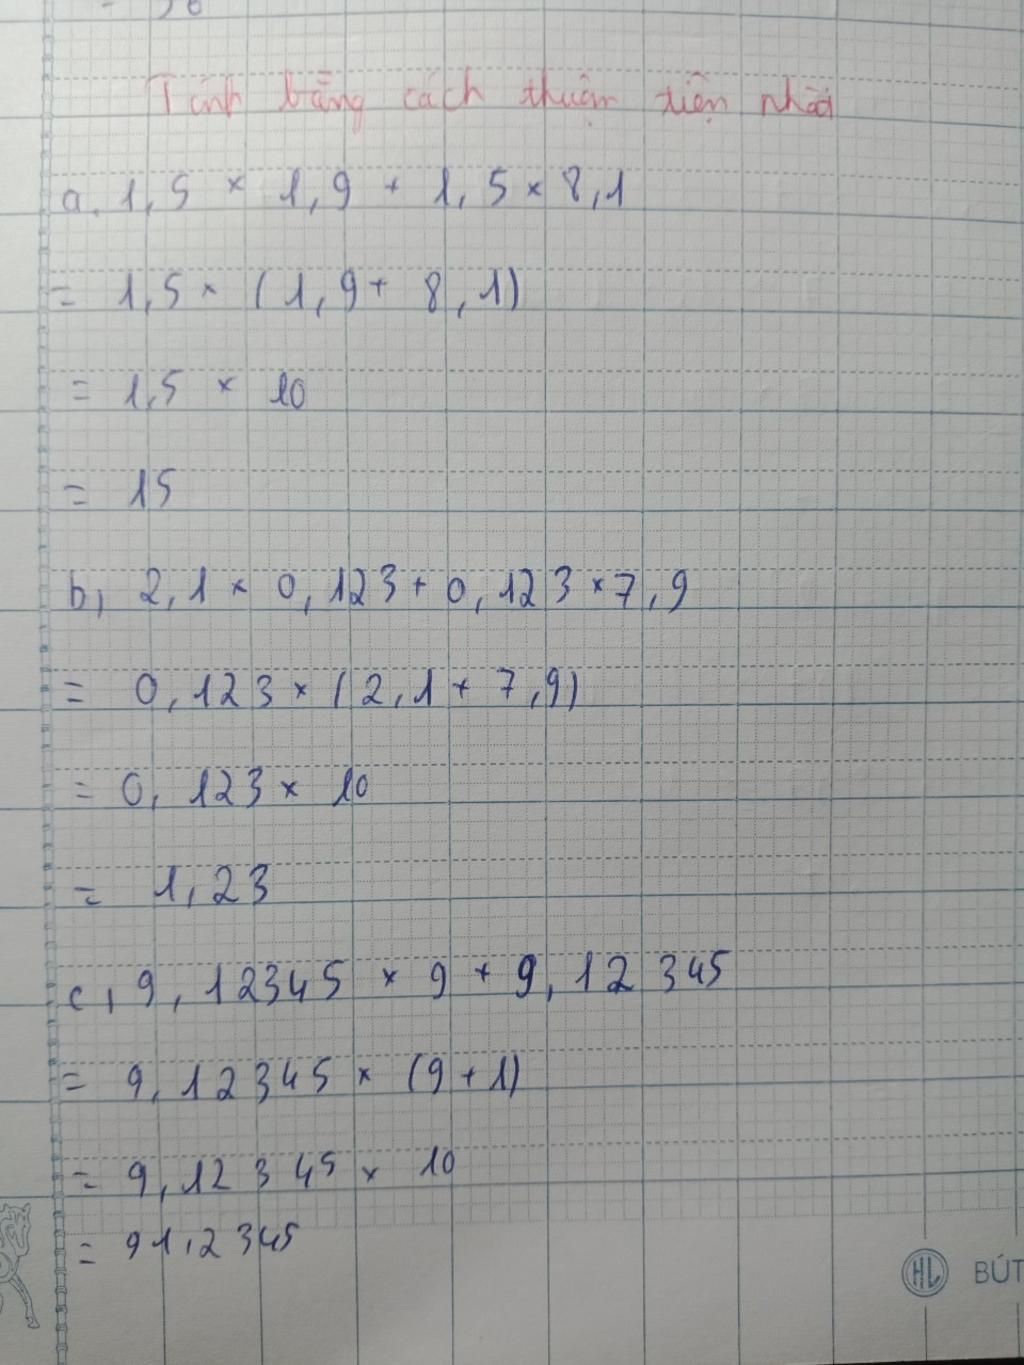 Tính bằng cách thuận tiện nhất
a. 1,5 × 1,9 + 1,5 × 8,1
= 1,5 × (1,9 + 8,1)
= 1,5 × 10
= 15
b, 2,1 × 0,123 + 0,123 × 7,9
= 0,123 × (2,1 + 7,9)
= 0,123 × 10
= 1,23
c, 9,12345 × 9 + 9,12345
= 9,12345 × (9 + 1)
= 9,12345 × 10
= 91,2345
HL BÚT